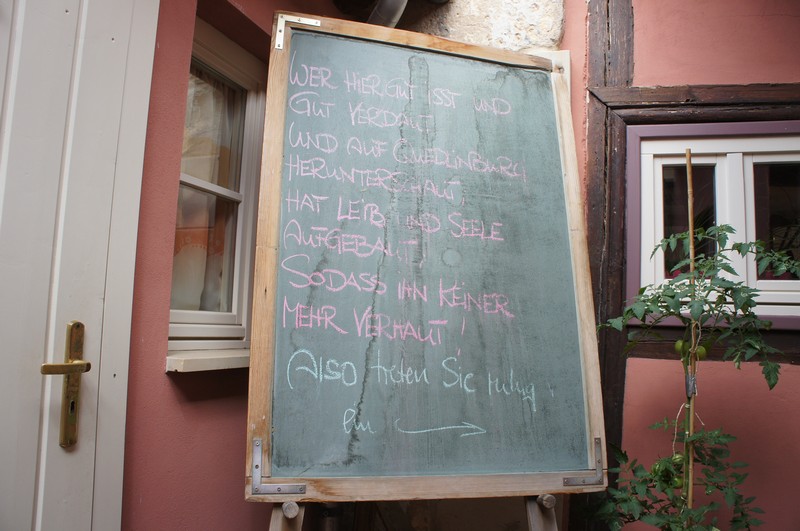 WER HIER GUT ISST UND
GUT VERDAUT
UND AUF QUEDLINBURG
HERUNTERSCHAUT,
HAT LEIB UND SEELE
AUFGEBAUT,
SODASS IHN KEINER
MEHR VERHAUT!
Also treten Sie ruhig
ein